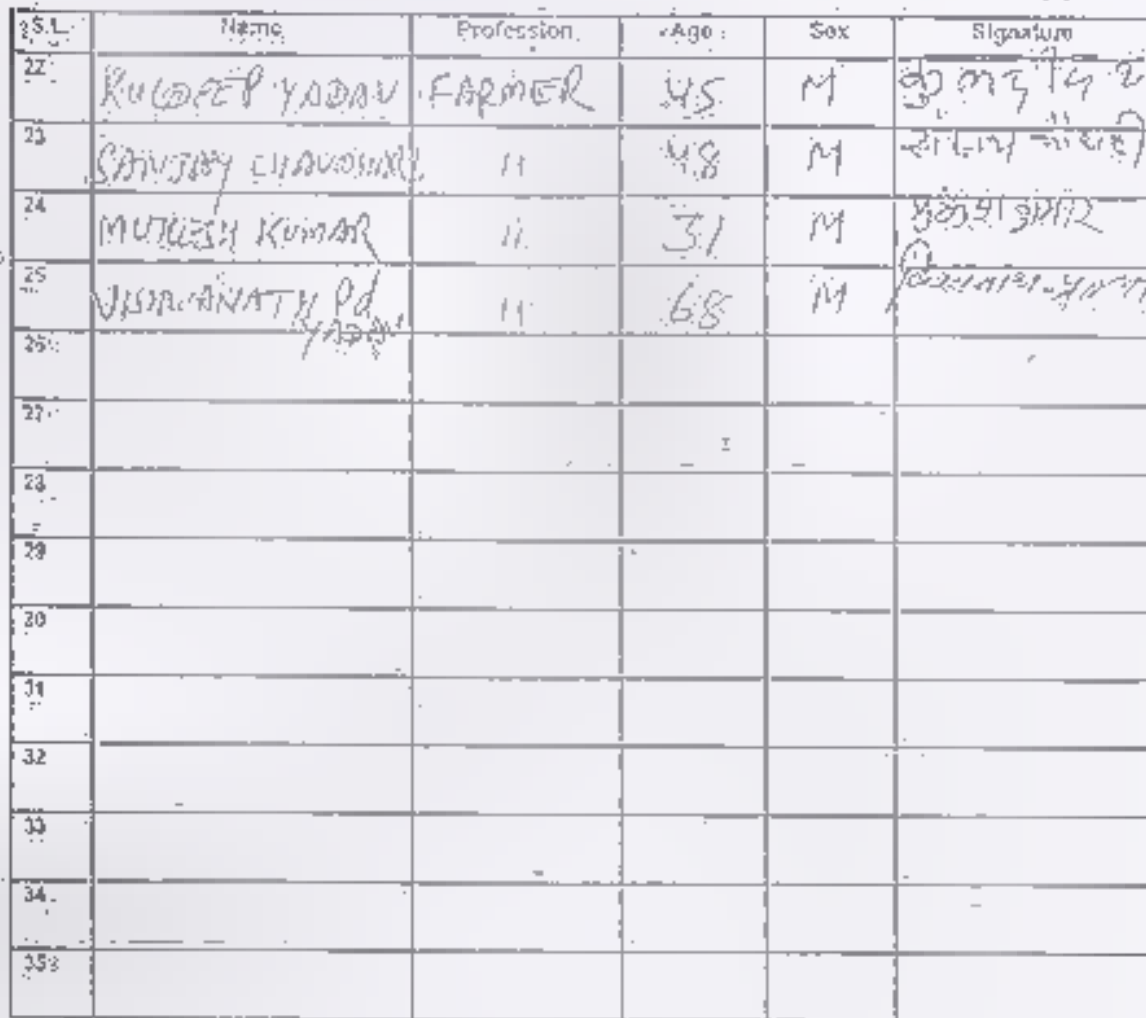 S.L. Name Profession Age Sex Signature
22 KULDEEP YADAV FARMER 45 M
23 SANJAY CHAUDHARY 11 48 M संजय चौधरी
24 MUKESH KUMAR 11 31 M मुकेश कुमार
25 VISHWANATH Pd 11 68 M
YADAV
26
27
28
29
30
31
32
33
34
35